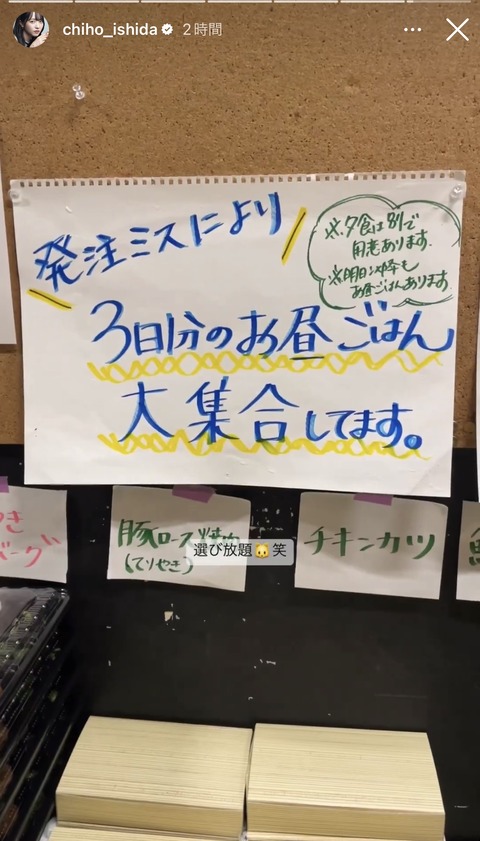 chiho_ishida 2時間
発注ミスにより
※夕食は別で
用意あります。
※明日以降も
お昼ごはんあります
3日分のお昼ごはん
大集合してます。
豚ロース
(てりやき)
チキンカツ
選び放題🐱笑